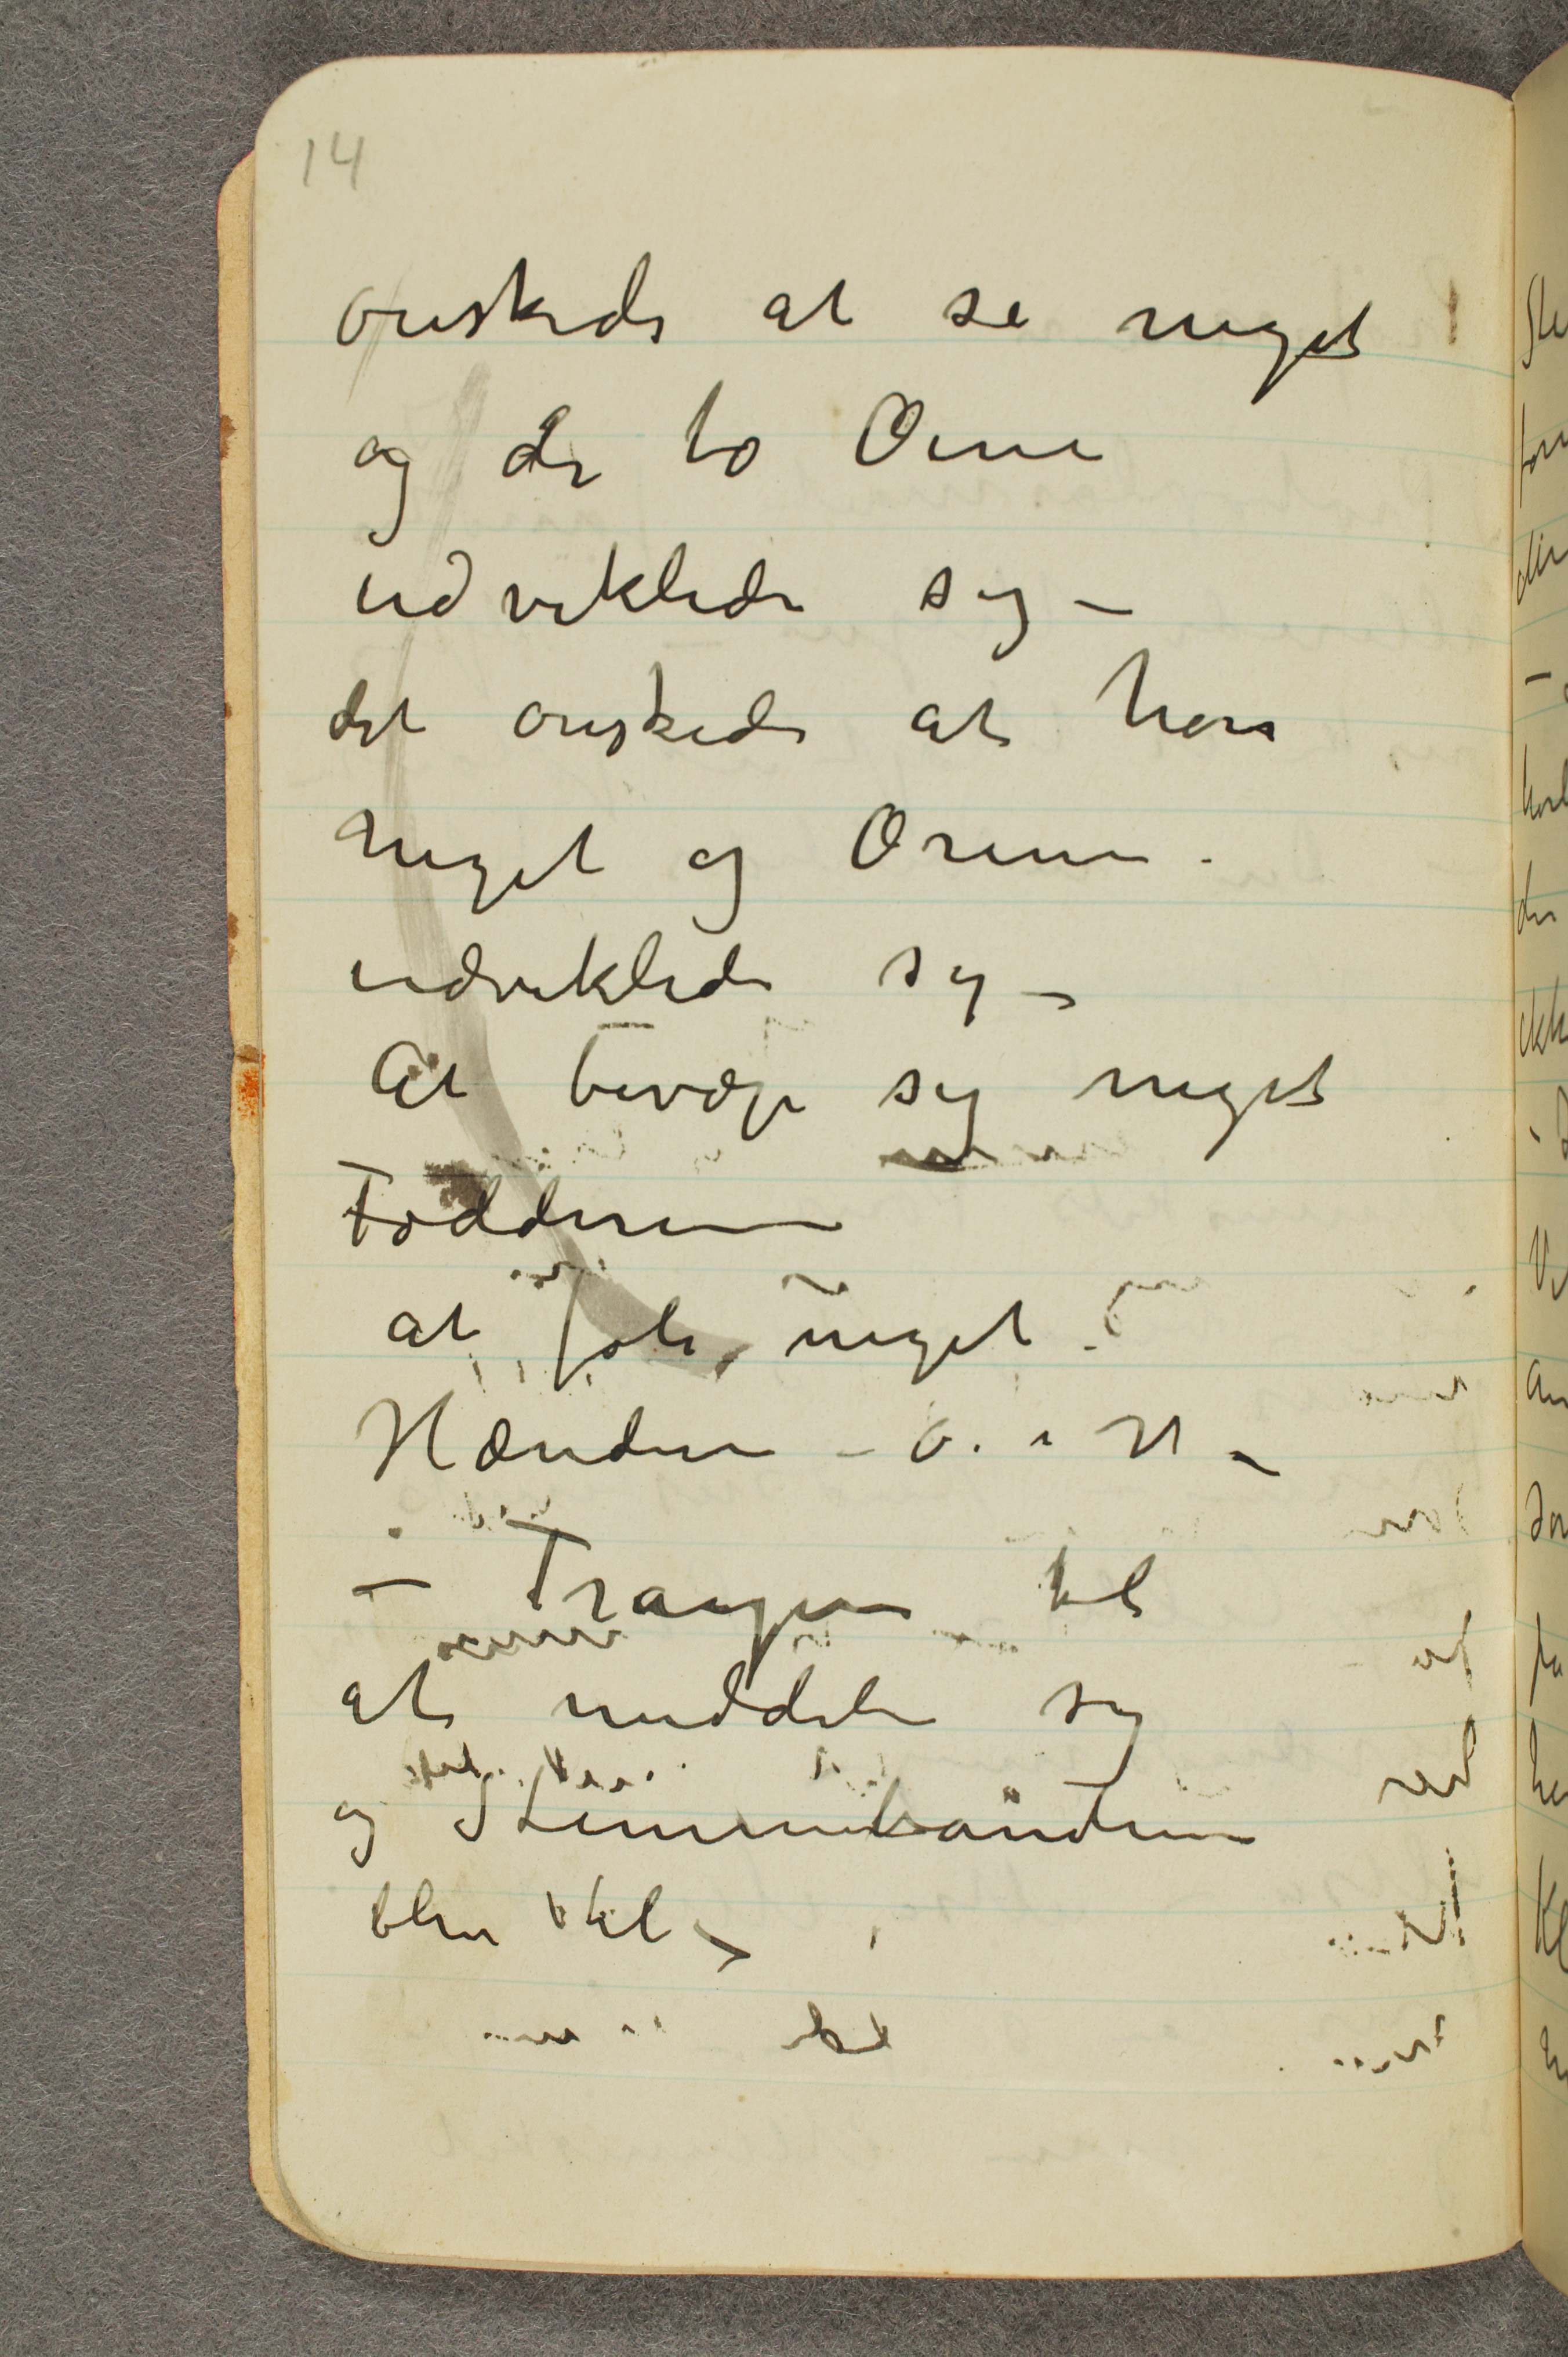 14
ønskede at se meget
og de to Øine
udviklede sig –
det ønskede at høre
meget og Ørene
udviklede sig –
At bevæge sig meget
Fødderne
at føle meget –
Hænderne – o. s. v. –
– Trangen til
at meddele sig
og Stemmebåndene
blev til –